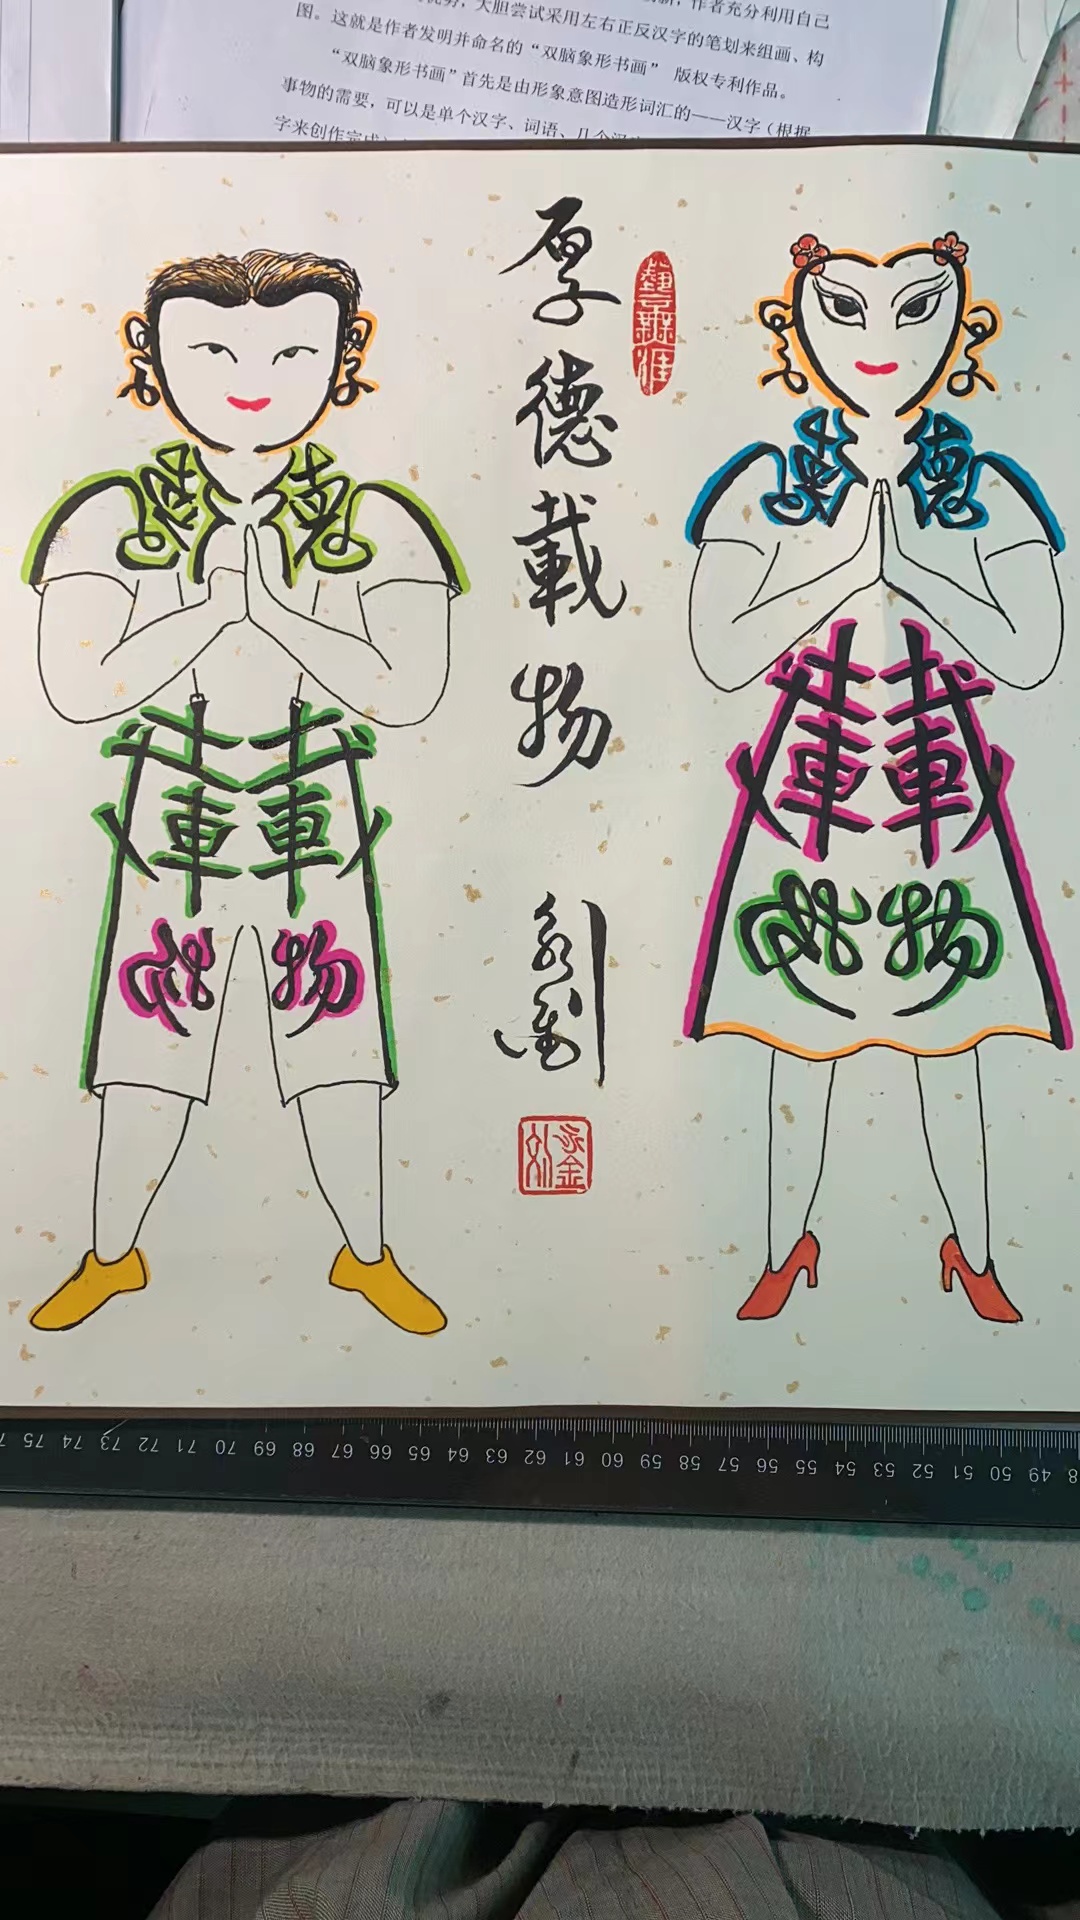 大胆尝试采用左右正反汉字的笔划来组画、构
作者充分利用自己
图。这就是作者发明并命名的“双脑象形书画” 版权专利作品。
“双脑象形书画”首先是由形象意图造形词汇的——汉字（根据
事物的需要，可以是单个汉字、词语、几个
字来创作完成
厚德載物
藝無涯
永鎏
刘永鎏
德
載載
物
德
載載
物
75 74 73 72 71 70 69 68 67 66 65 64 63 62 61 60 59 58 57 56 55 54 53 52 51 50 49